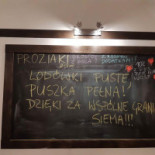 PROZIAKI
LODÓWKI PUSTE,
PUSZKA PEŁNA!
DZIĘKI ZA WSPÓLNE GRANIE
SIEMA!!!